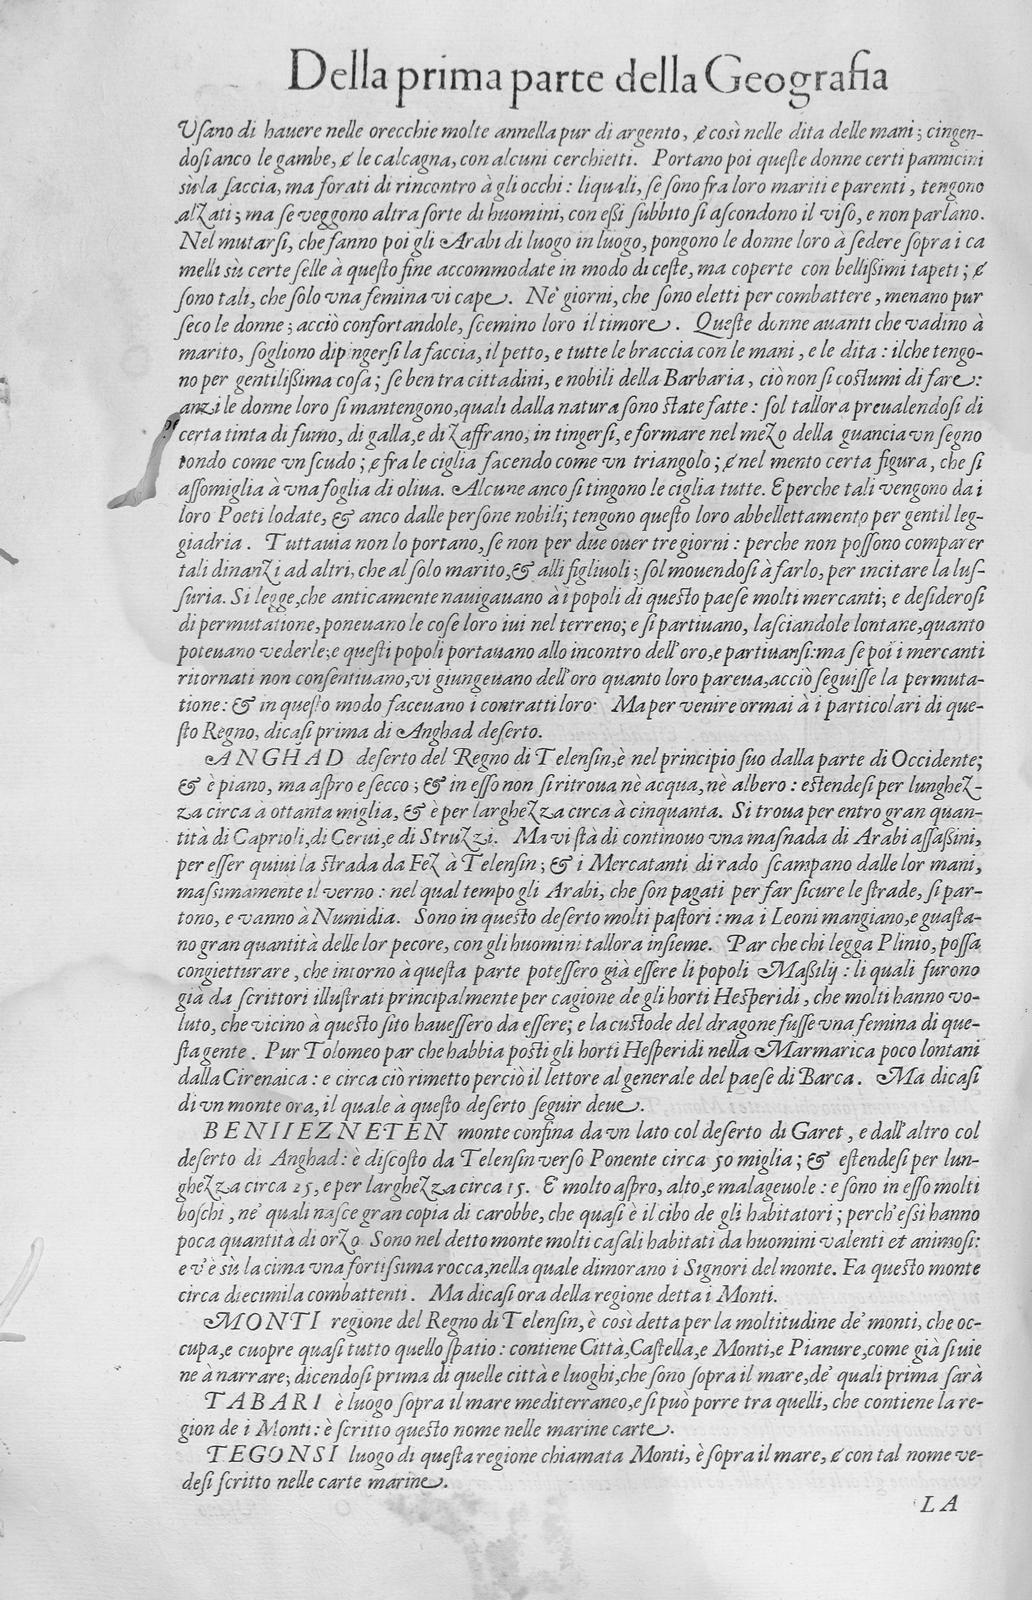 Della prima parte della Geografia
Vsano di hauere nelle orecchie molte annella pur di argento, & così nelle dita delle mani; cingen-
dosi anco le gambe, & le calcagna, con alcuni cerchietti. Portano poi queste donne certi pannicini
sù la faccia, ma forati di rincontro à gli occhi: li quali, se sono fra loro mariti e parenti, tengono
alzati; ma se veggono altra sorte di huomini, con essi subbito si ascondono il viso, e non parlano.
Nel mutarsi, che fanno poi gli Arabi di luogo in luogo, pongono le donne loro à sedere sopra i ca
melli sù certe selle à questo fine accommodate in modo di ceste, ma coperte con bellissimi tapeti; &
sono tali, che solo vna femina vi cape. Nè giorni, che sono eletti per combattere, menano pur
seco le donne; acciò confortandole, scemino loro il timore. Queste donne auanti che vadino à
marito, sogliono dipingersi la faccia, il petto, e tutte le braccia con le mani, e le dita: ilche tengo-
no per gentilissima cosa; se ben tra cittadini, e nobili della Barbaria, ciò non si costumi di fare:
anzi le donne loro si mantengono, quali dalla natura sono state fatte: sol tallora preualendosi di
certa tinta di fumo, di galla, e di zaffrano, in tingersi, e formare nel mezo della guancia vn segno
tondo come vn scudo; & fra le ciglia facendo come vn triangolo; & nel mento certa figura, che si
assomiglia à vna foglia di oliua. Alcune anco si tingono le ciglia tutte. E perche tali vengono da i
loro Poeti lodate, & anco dalle persone nobili; tengono questo loro abbellettamento per gentil leg-
giadria. Tuttauia non lo portano, se non per due ouer tre giorni: perche non possono comparer
tali dinanzi ad altri, che al solo marito, & alli figliuoli; sol mouendosi à farlo, per incitare la lus-
suria. Si legge, che anticamente nauigauano à i popoli di questo paese molti mercanti; e desiderosi
di permutatione, poneuano le cose loro iui nel terreno; e si partiuano, lasciandole lontane, quanto
poteuano vederle; e questi popoli portauano allo incontro dell'oro, e partiuansi: ma se poi i mercanti
ritornati non consentiuano, vi giungeuano dell'oro quanto loro pareua, acciò seguisse la permuta-
tione: & in questo modo faceuano i contratti loro. Ma per venire ormai à i particolari di que-
sto Regno, dicasi prima di Anghad deserto.
ANGHAD deserto del Regno di Telensin, è nel principio suo dalla parte di Occidente;
& è piano, ma aspro e secco; & in esso non si ritroua nè acqua, nè albero: estendesi per lunghez-
za circa à ottanta miglia, & è per larghezza circa à cinquanta. Si troua per entro gran quan-
tità di Caprioli, di Cerui, e di Struzzi. Ma vi stà di continouo vna masnada di Arabi assassini,
per esser quiui la strada da Fez à Telensin; & i Mercatanti di rado scampano dalle lor mani,
massimamente il verno: nel qual tempo gli Arabi, che son pagati per far sicure le strade, si par-
tono, e vanno à Numidia. Sono in questo deserto molti pastori: ma i Leoni mangiano, e guasta-
no gran quantità delle lor pecore, con gli huomini tallora insieme. Par che chi legga Plinio, possa
congietturare, che intorno à questa parte potessero già essere li popoli Massilij: li quali furono
già da scrittori illustrati principalmente per cagione de gli horti Hesperidi, che molti hanno vo-
luto, che vicino à questo sito hauessero da essere; e la custode del dragone fusse vna femina di que-
sta gente. Pur Tolomeo par che habbia posti gli horti Hesperidi nella Marmarica poco lontani
dalla Cirenaica: e circa ciò rimetto perciò il lettore al generale del paese di Barca. Ma dicasi
di vn monte ora, il quale à questo deserto seguir deue.
BENIIEZNETEN monte confina da vn lato col deserto di Garet, e dall'altro col
deserto di Anghad: è discosto da Telensin verso Ponente circa 50 miglia; & estendesi per lun-
ghezza circa 25, e per larghezza circa 15. E' molto aspro, alto, e malageuole: e sono in esso molti
boschi, ne' quali nasce gran copia di carobbe, che quasi è il cibo de gli habitatori; perch'essi hanno
poca quantità di orzo. Sono nel detto monte molti casali habitati da huomini valenti et animosi:
e v'è sù la cima vna fortissima rocca, nella quale dimorano i Signori del monte. Fa questo monte
circa diecimila combattenti. Ma dicasi ora della regione detta i Monti.
MONTI regione del Regno di Telensin, è così detta per la moltitudine de' monti, che oc-
cupa, e cuopre quasi tutto quello spatio: contiene Città, Castella, e Monti, e Pianure, come già si uie
ne à narrare; dicendosi prima di quelle città e luoghi, che sono sopra il mare, de' quali prima sarà
TABARI è luogo sopra il mare mediterraneo, e si può porre tra quelli, che contiene la re-
gion de i Monti: è scritto questo nome nelle marine carte.
TEGONSI luogo di questa regione chiamata Monti, è sopra il mare, & con tal nome ve-
desi scritto nelle carte marine.
LA